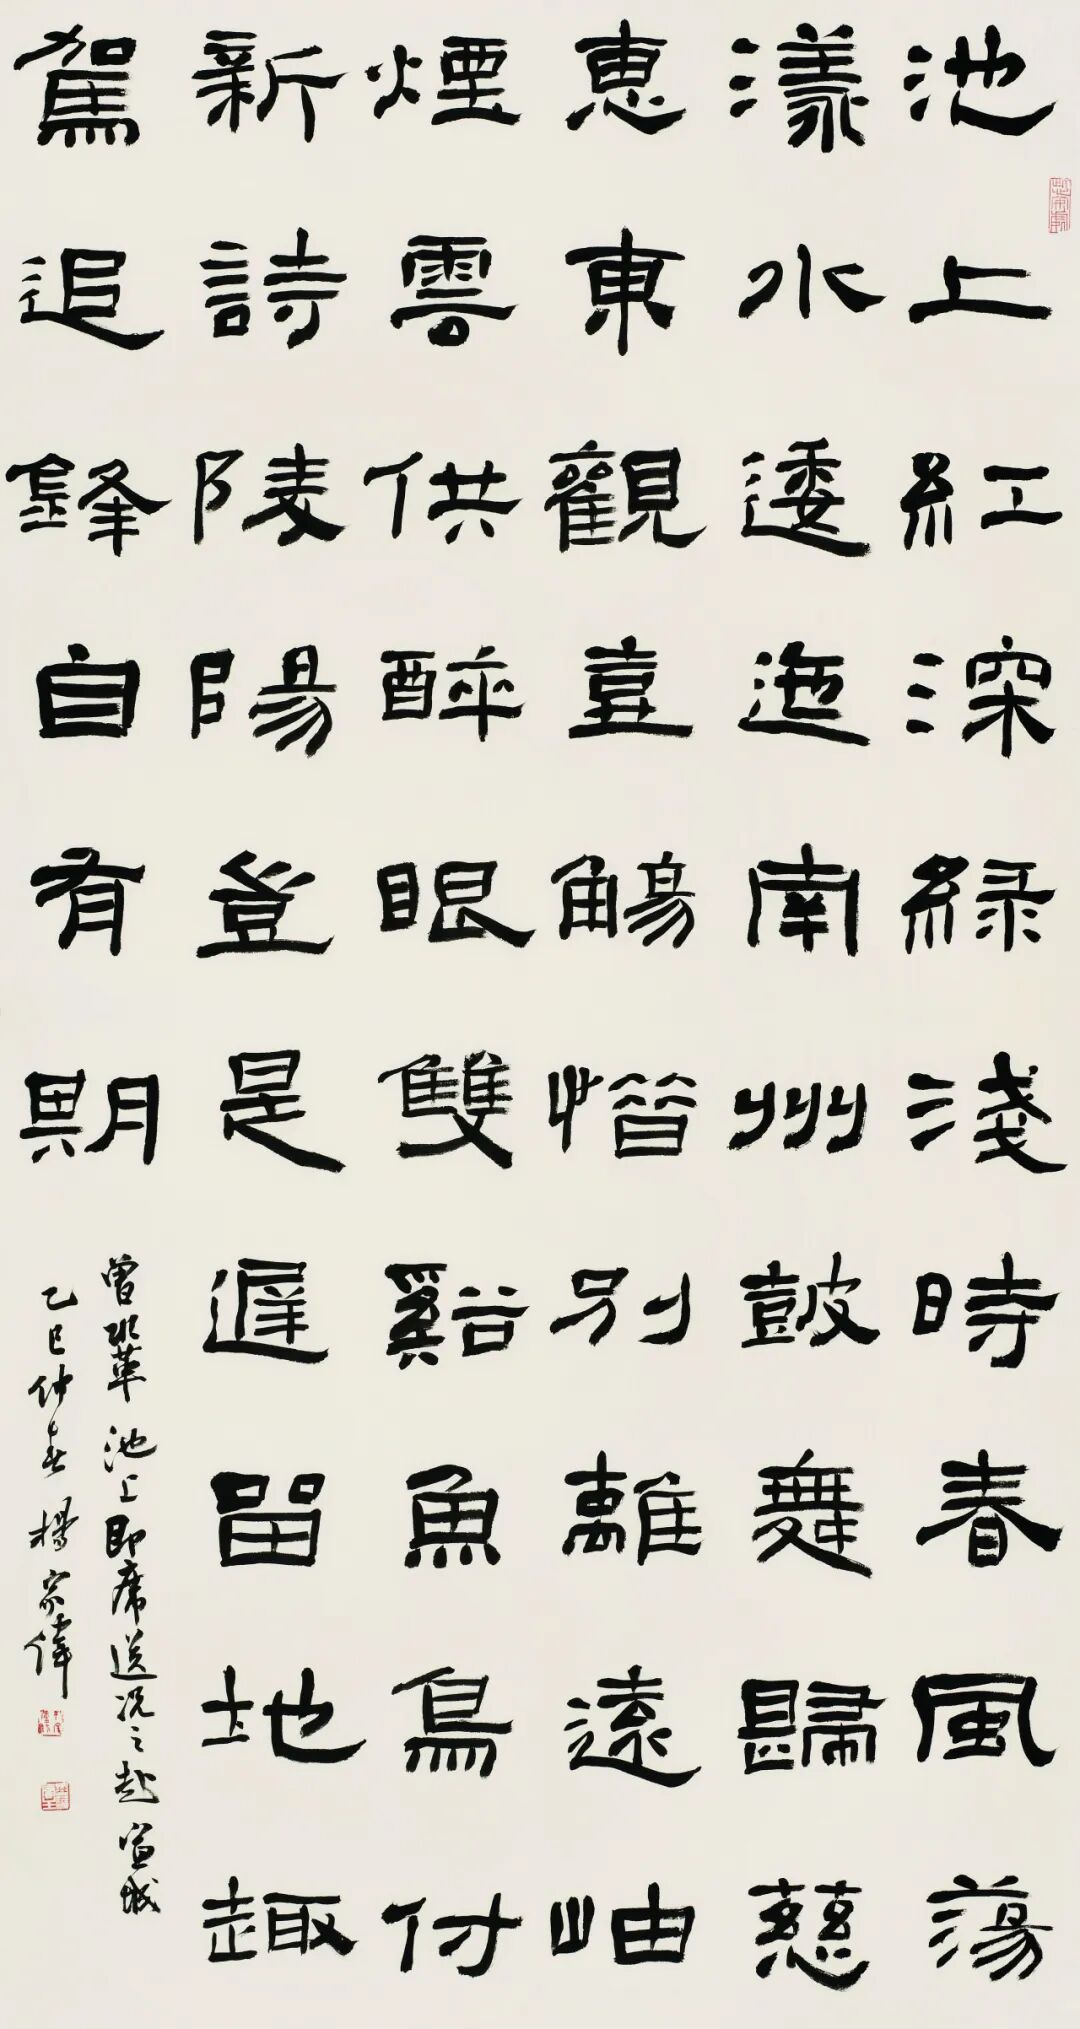 池上紅深綠淺時春風蕩
漾水逶迤南州鼓舞歸慈
惠東觀壺觴惜別離遠岫
煙雲供醉眼雙谿魚鳥付
新詩陵陽豈是遲留地趣
駕追鋒自有期
曾鞏池上即席送况之赴宣城
乙巳仲春楊家偉